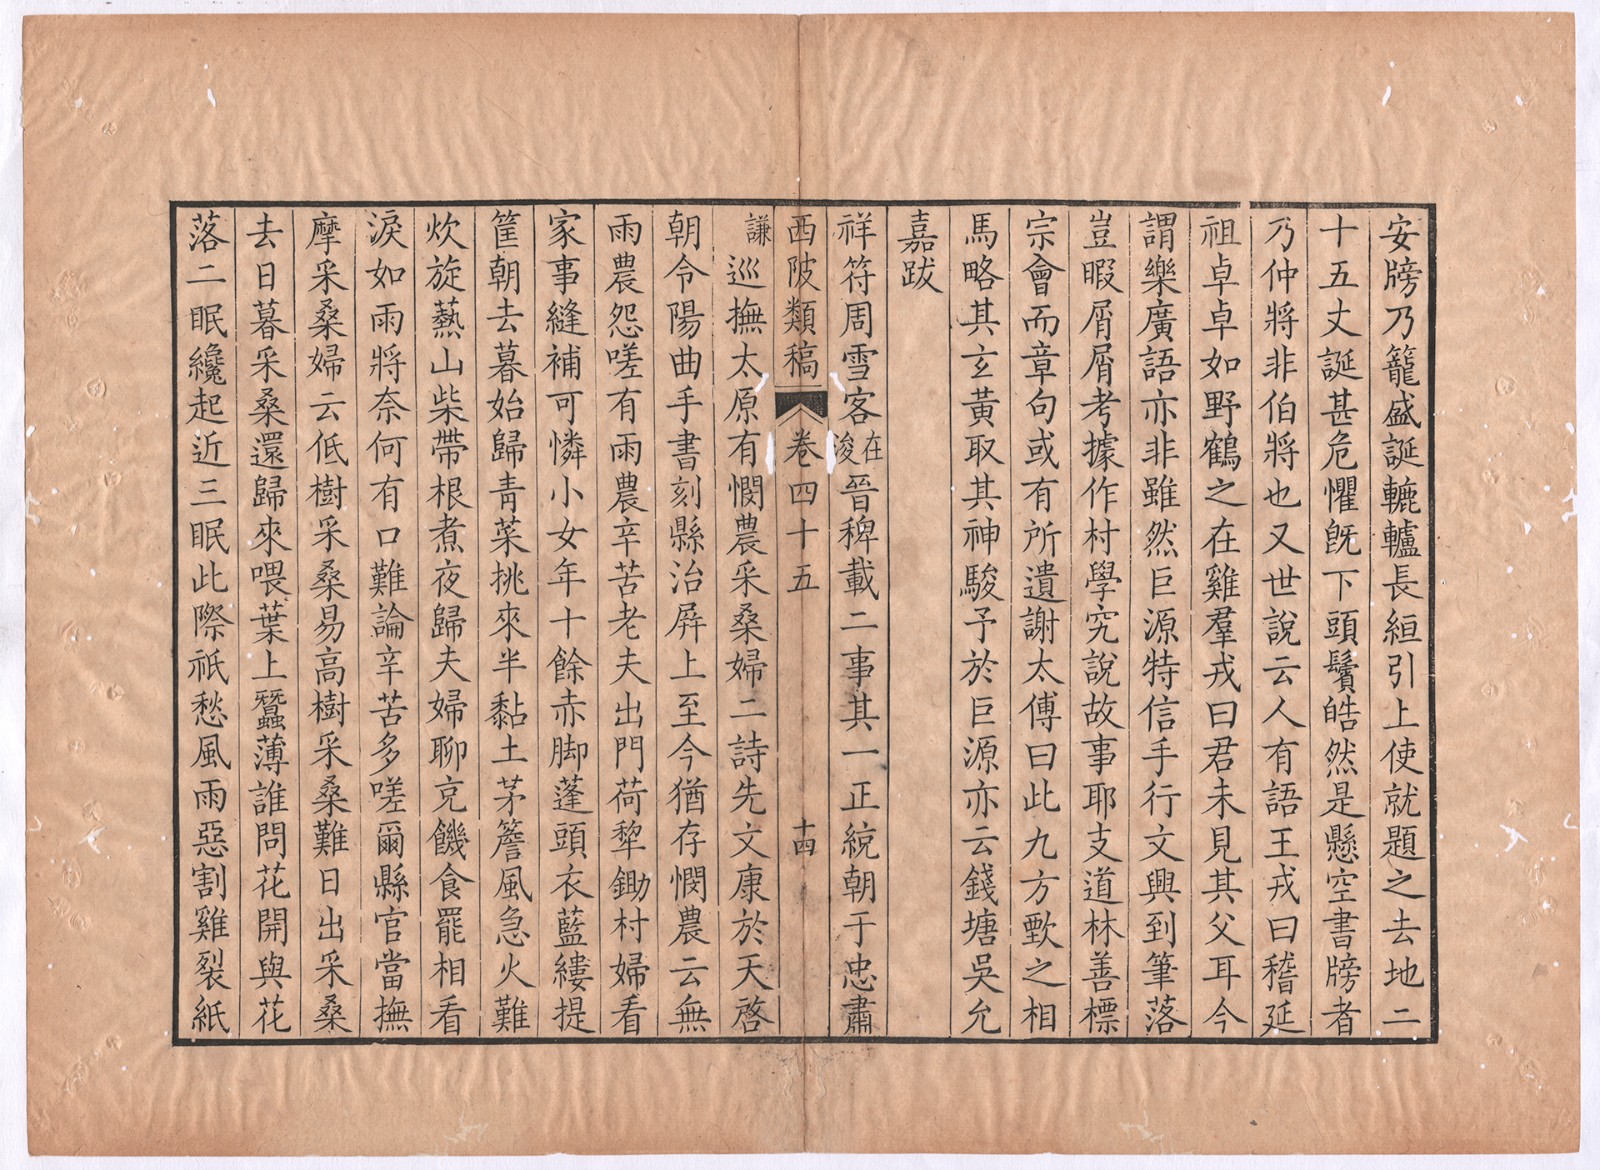 安牓乃籠盛誕轆轤長絙引上使就題之去地二
十五丈誕甚危懼旣下頭鬢皓然是懸空書牓者
乃仲將非伯將也又世說云人有語王戎曰稽延
祖卓卓如野鶴之在雞羣戎曰君未見其父耳今
謂樂廣語亦非雖然巨源特信手行文興到筆落
豈暇屑屑考據作村學究說故事耶支道林善標
宗會而章句或有所遺謝太傅曰此九方歅之相
馬略其玄黃取其神駿予於巨源亦云錢塘吳允
嘉跋
祥符周雪客在浚晉稗載二事其一正統朝于忠肅
西陂類稿 卷四十五 十四
謙巡撫太原有憫農采桑婦二詩先文康於天啓
朝令陽曲手書刻縣治屏上至今猶存憫農云無
雨農怨嗟有雨農辛苦老夫出門荷犂鋤村婦看
家事縫補可憐小女年十餘赤脚蓬頭衣藍縷提
筐朝去暮始歸青菜挑來半黏土茅簷風急火難
炊旋爇山柴帶根煮夜歸夫婦聊充饑食罷相看
淚如雨將奈何有口難論辛苦多嗟爾縣官當撫
摩采桑婦云低樹采桑易高樹采桑難日出采桑
去日暮采桑還歸來喂葉上蠶薄誰問花開與花
落二眠纔起近三眠此際祇愁風雨惡割雞裂紙